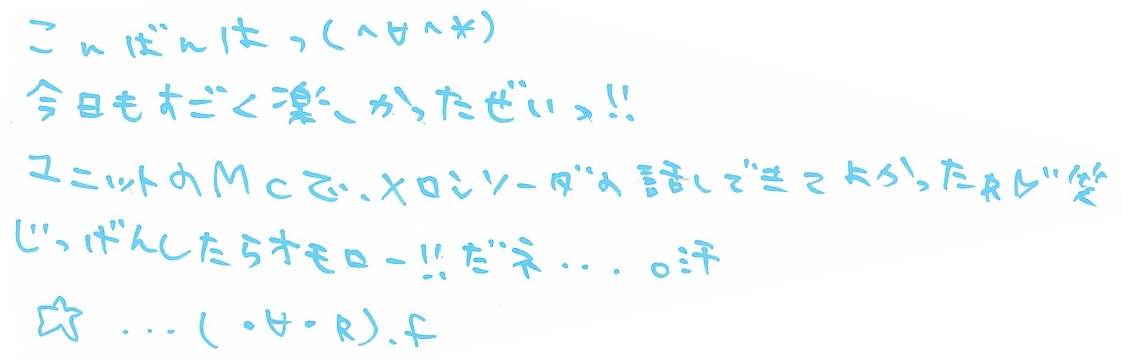 こんばんはっ(^∀^*)
今日もすごく楽しかったぜいっ!!
ユニットのMCで、メロンソーダの話しできてよかったRじ゛笑
じつげんしたらオモロー!!だネ....。汗
☆ ...( ・∀・R).f